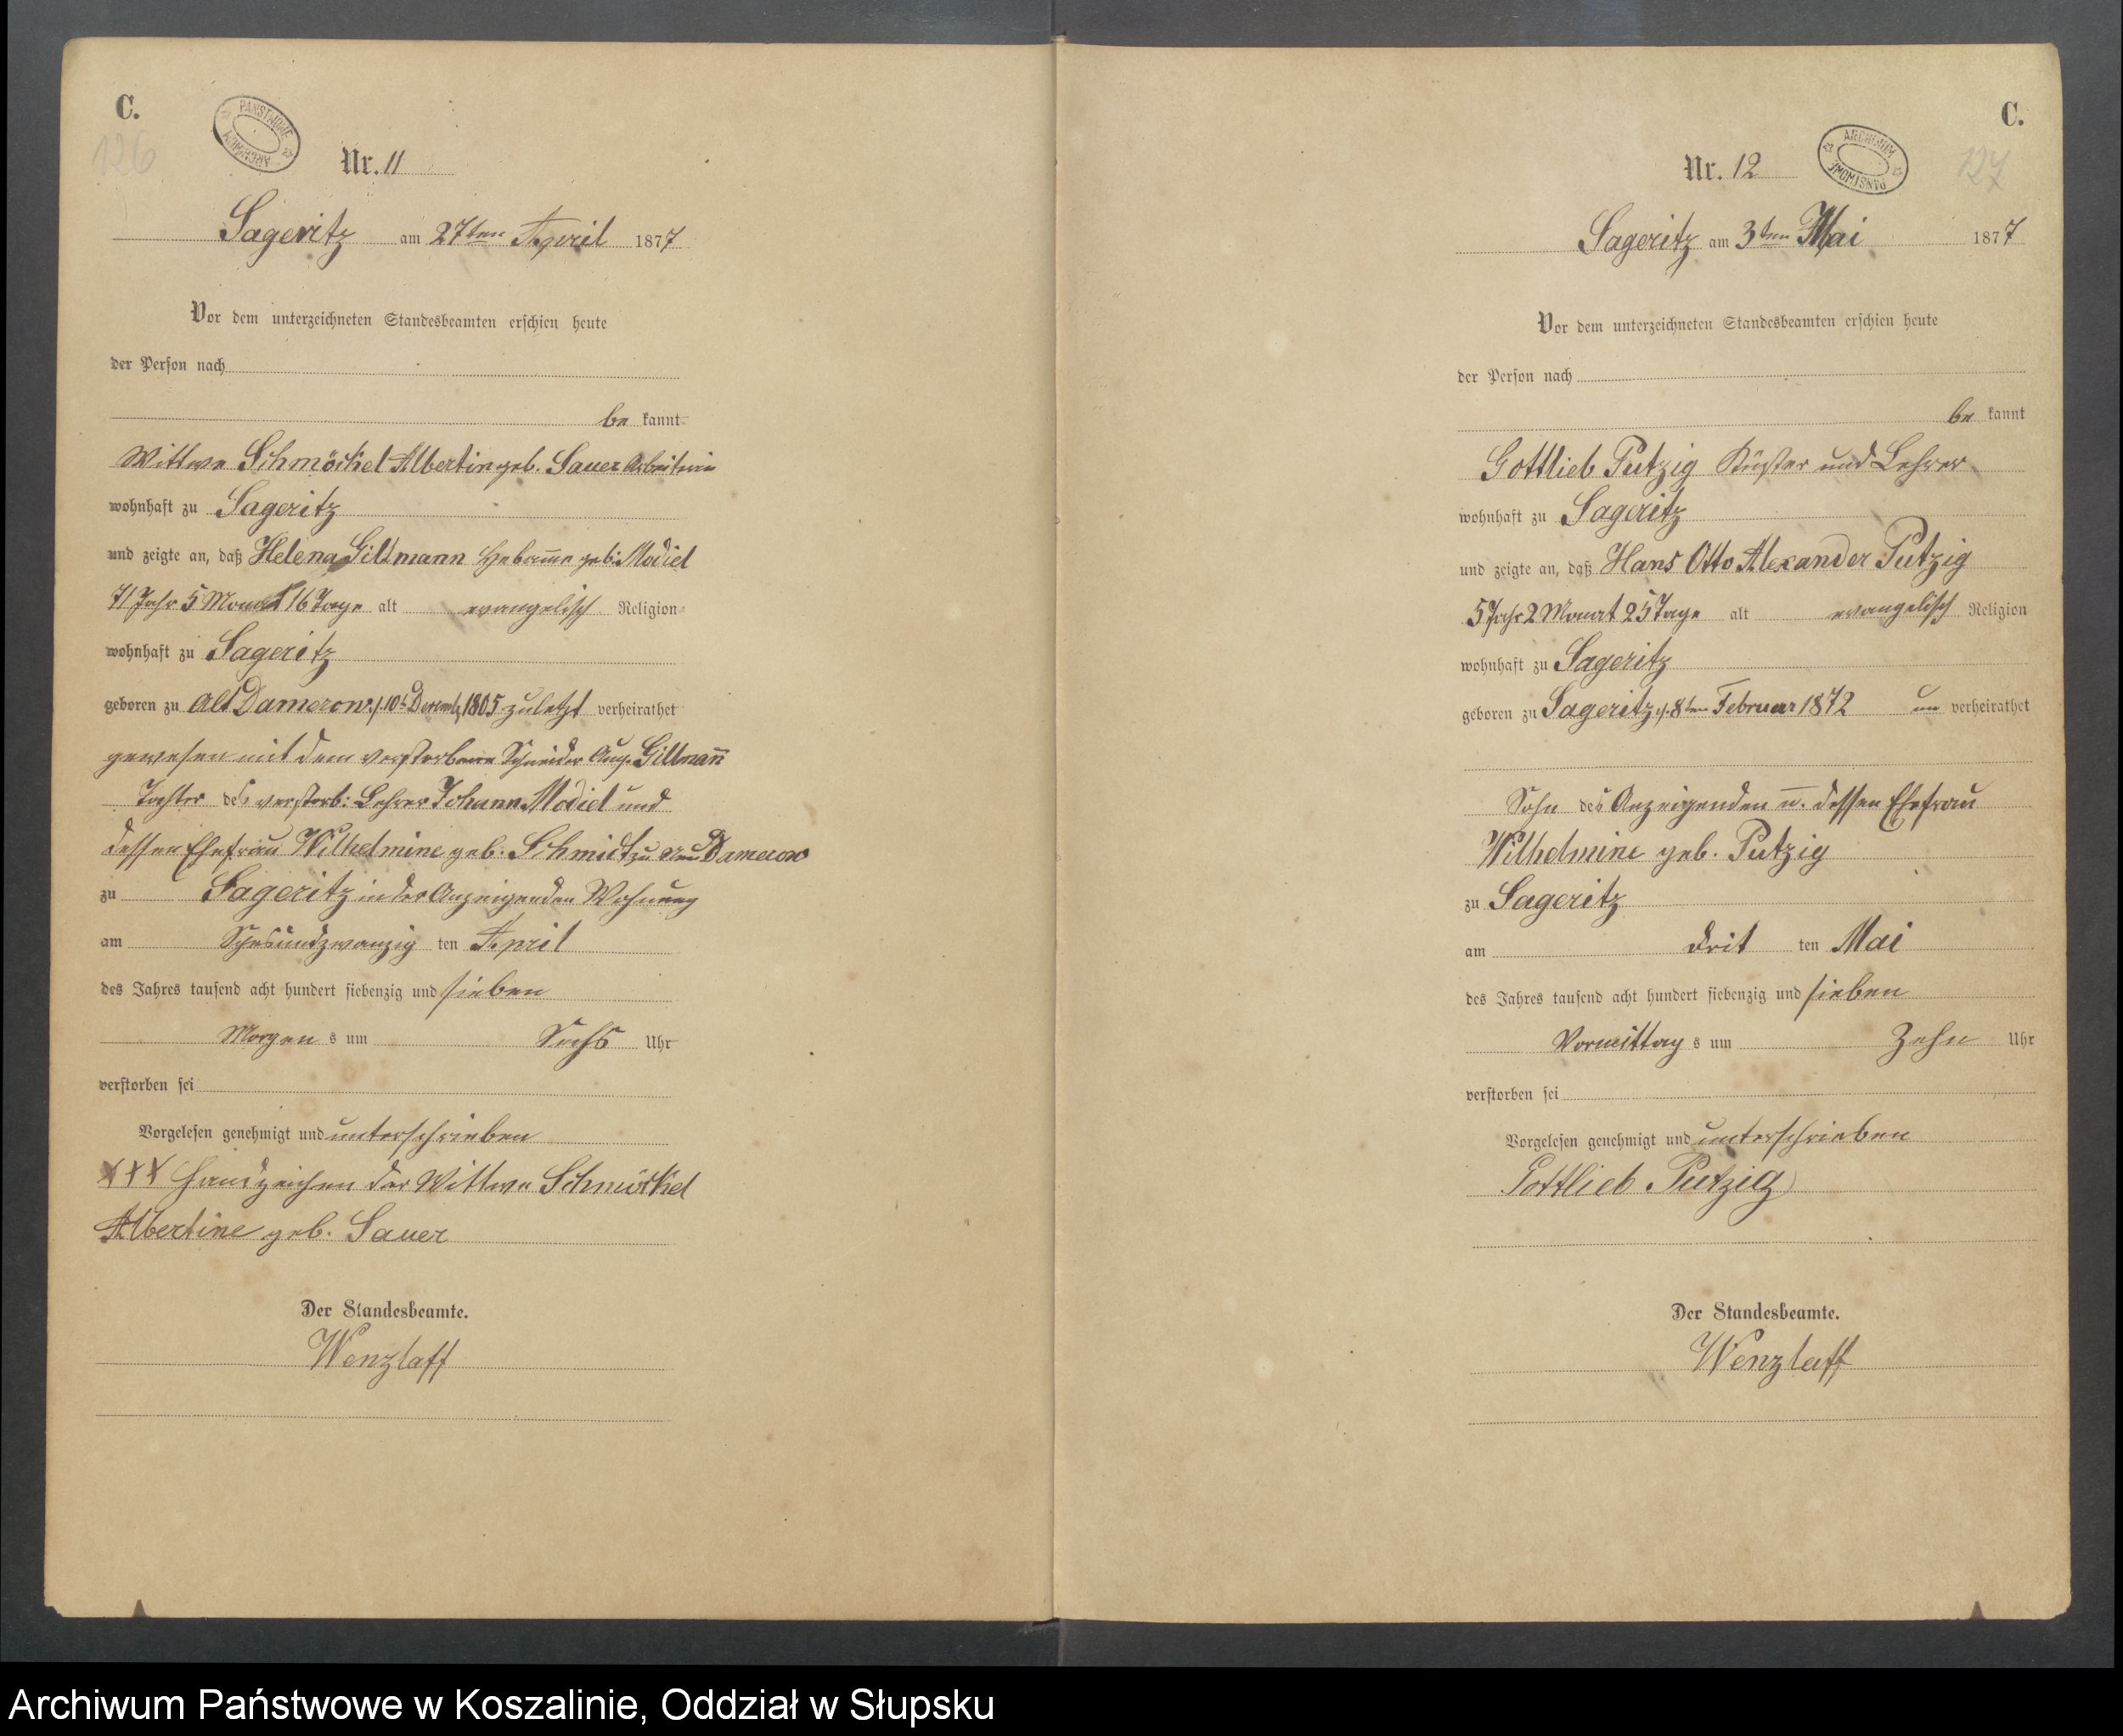 C.
126
PAŃSTWOWE ARCHIWUM
Nr. 11
Sageritz am 27ten April 1877
Vor dem unterzeichneten Standesbeamten erschien heute
der Person nach
be kannt
Wittwe Schmöckel Albertin geb. Sauer Arbeiterin
wohnhaft zu Sageritz
und zeigte an, daß Helena Gillmann Hebam̄e geb: Modiel
71 Jahr 5 Monat 16 Tage alt evangelisch Religion
wohnhaft zu Sageritz
geboren zu Alt Damerow d. 10t Decemb 1805 zuletzt verheirathet
gewesen mit dem verstorbene Schneider Aug. Gillman̄
Tochter des verstorb: Lehrer Johann Modiel und
dessen Ehefrau Wilhelmine geb. Schmidt zu Neu Damerow
zu Sageritz in der Anzeigenden Wohnung
am Sechsundzwanzig ten April
des Jahres tausend acht hundert siebenzig und sieben
Morgen s um Sechs Uhr
verstorben sei
Vorgelesen genehmigt und unterschrieben
XXX Handzeichen der Wittwe Schmöckel
Albertine geb. Sauer
Der Standesbeamte.
Wenzlaff
C.
127
ARCHIWUM PAŃSTWOWE
Nr. 12
Sageritz am 3ten Mai 1877
Vor dem unterzeichneten Standesbeamten erschien heute
der Person nach
be kannt
Gottlieb Putzig Küster und Lehrer
wohnhaft zu Sageritz
und zeigte an, daß Hans Otto Alexander Putzig
5 Jahr 2 Monat 25 Tage alt evangelisch Religion
wohnhaft zu Sageritz
geboren zu Sageritz d. 8ten Februar 1872 un verheirathet
Sohn des Anzeigenden u. dessen Ehefrau
Wilhelmine geb. Putzig
zu Sageritz
am drit ten Mai
des Jahres tausend acht hundert siebenzig und sieben
Vormittag s um Zehn Uhr
verstorben sei
Vorgelesen genehmigt und unterschrieben
Gottlieb Putzig
Der Standesbeamte.
Wenzlaff
Archiwum Państwowe w Koszalinie, Oddział w Słupsku